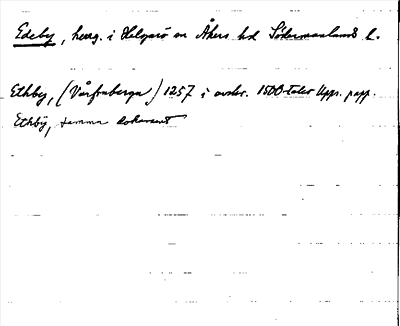 Edeby, herrg. i Helgarö sn Åkers hd Södermanlands l.
Ethby, (Vårfruberga) 1257 i avskr. 1500-talet Upps. papp.
Ethby, samma dokument